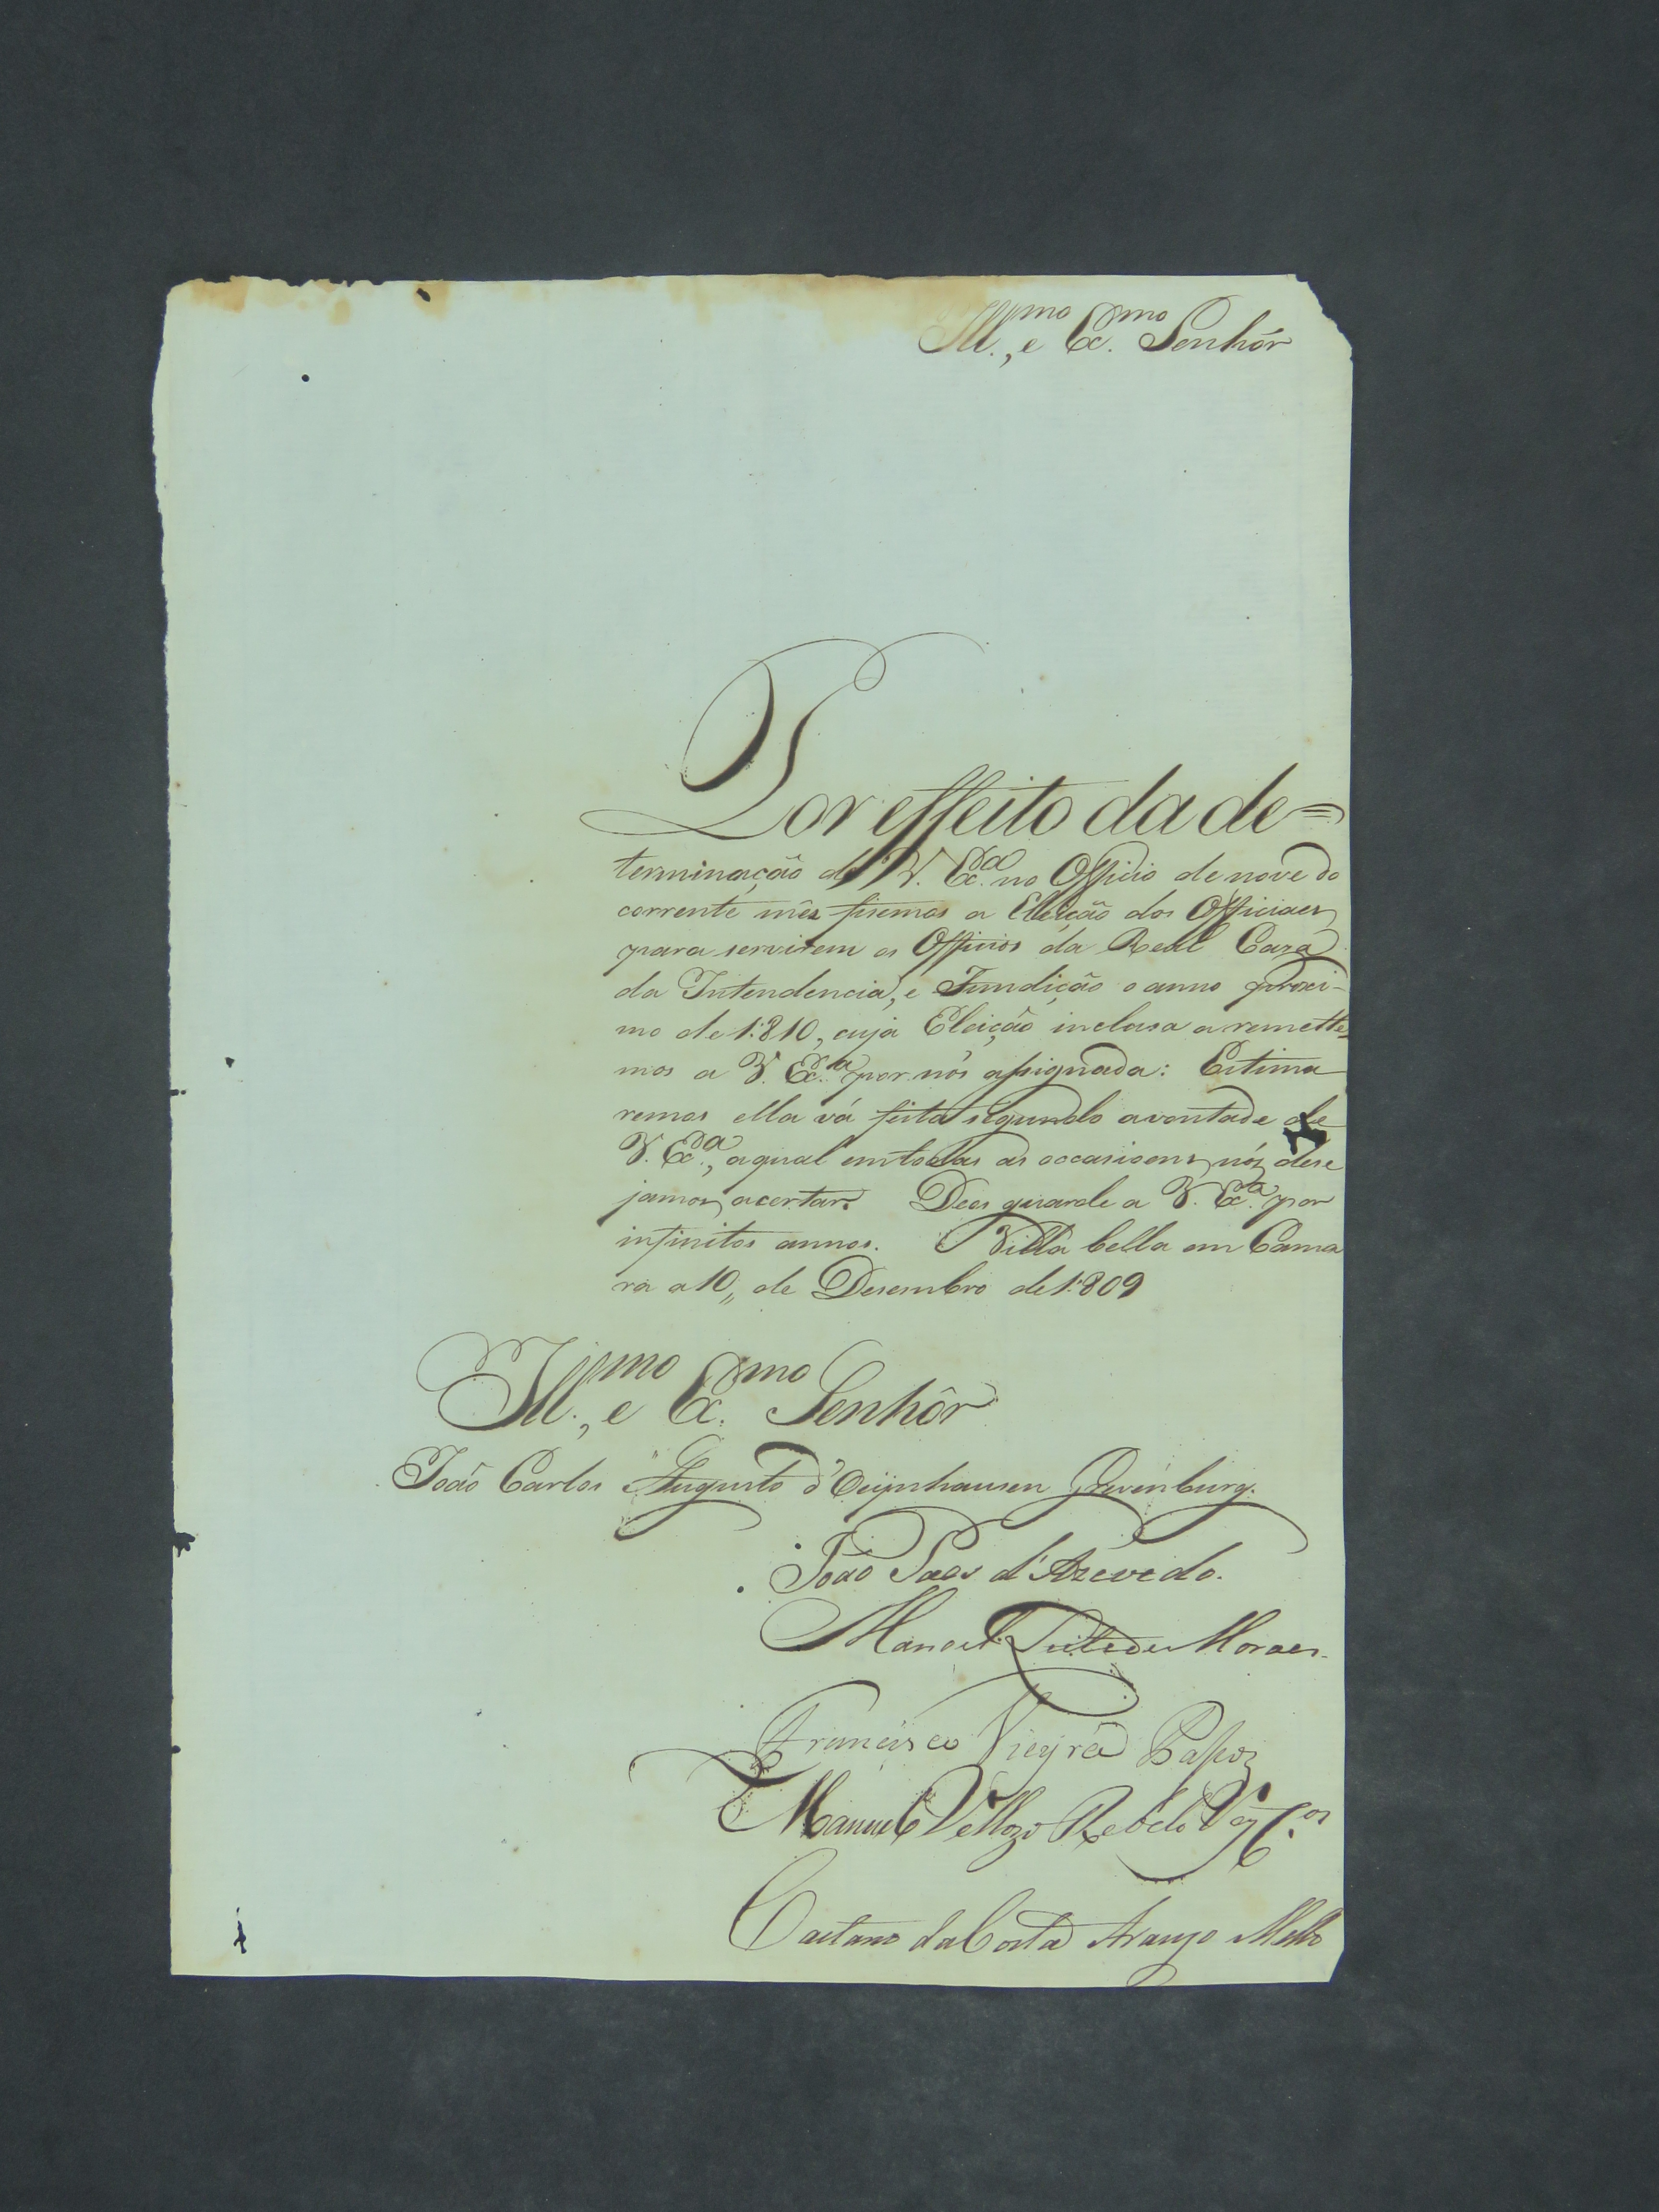 Ill.mo, e Ex.mo Senhôr
Por effeito da de=
terminação de V. Ex.ca no Officio de nove do
corrente mês fisemos a Eleição dos Officiaes
para servirem os Officios da Real Caza
da Intendencia, e Fundição o anno proxi-
mo de 1:810, cuja Eleição inclusa a remette
mos a V. Ex.ca por nós assignada: Estima
remos ella vá feita segundo a vontade de
V. Ex.ca, a qual em todas as occasioens nós dese
jamos acertar. Deos guarde a V. Ex.ca por
infinitos annos. Villa bella em Cama
ra a 10,, de Desembro de 1:809
Ill.mo, e Ex.mo Senhôr
João Carlos Augusto d'Oeijnhausen Grevenburg.
João Paes d'Azevedo.
Manoel Leite de Moraes.
Francisco Vieyra Passos
Manuel Vellozo Rebelo Vas.cos
Caetano da Costa Araujo Mello